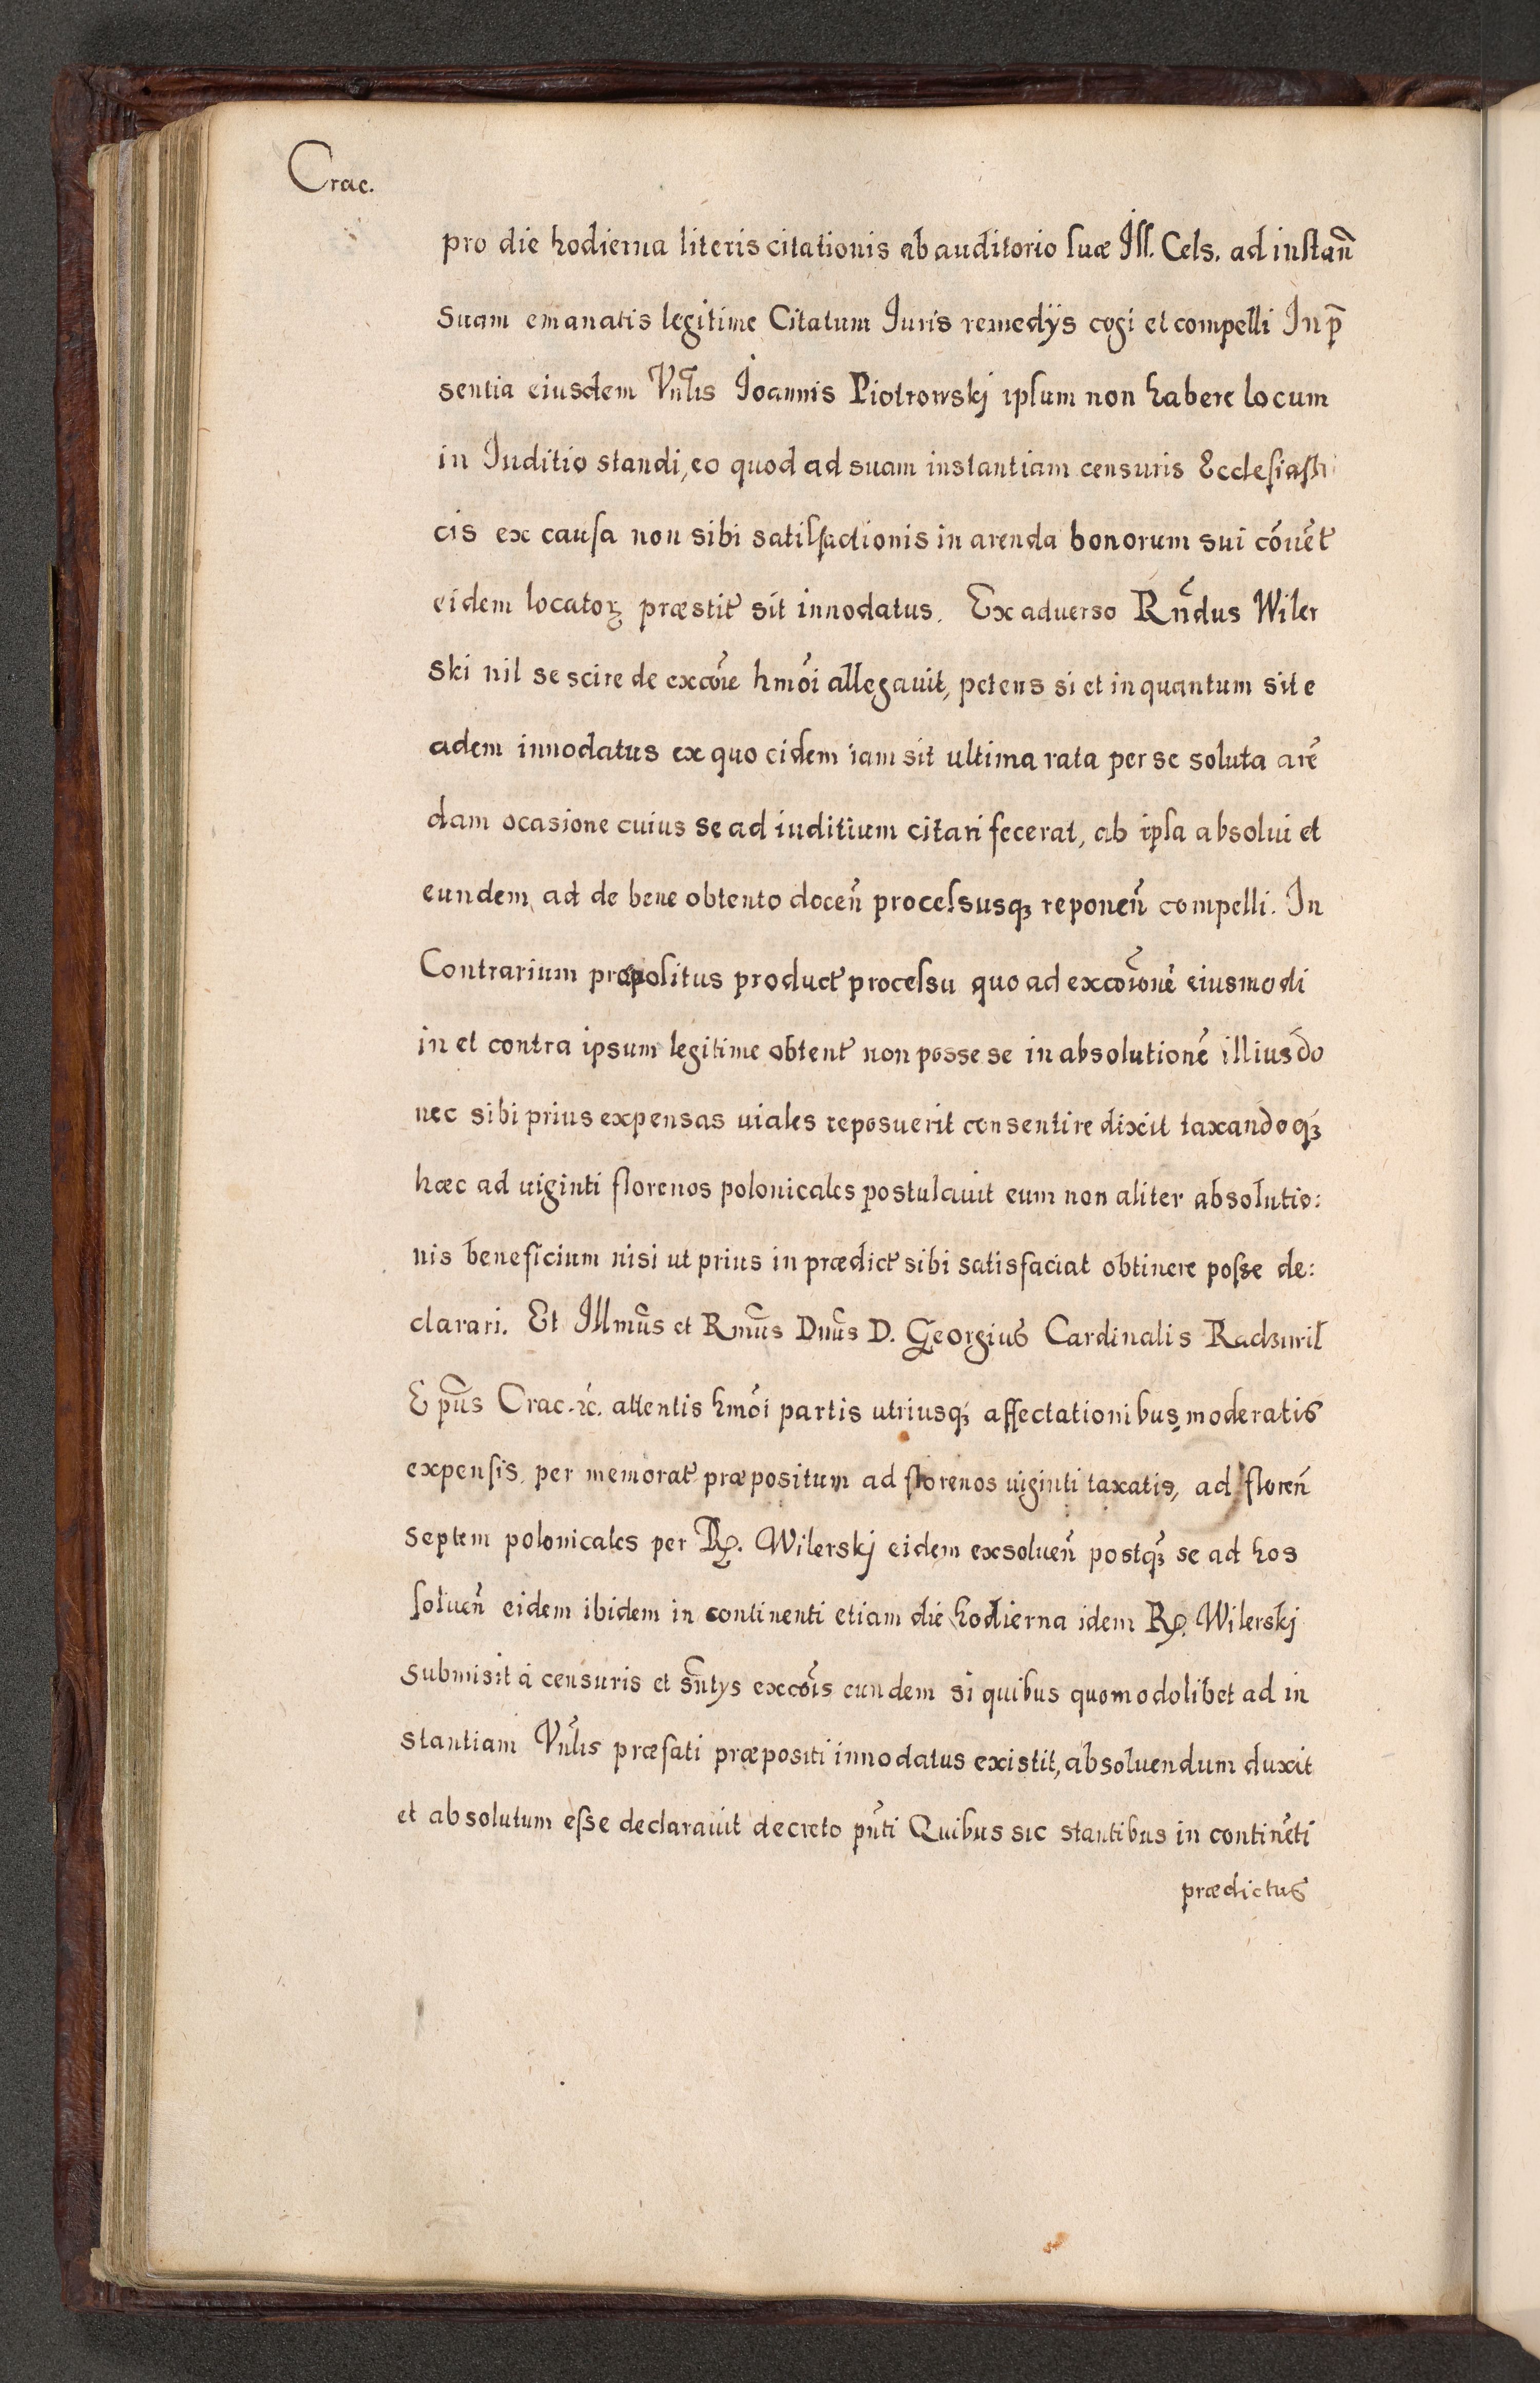 Crac.
pro die hodierna literis citationis ab auditorio suæ Ill. Cels. ad instañ
suam emanatis legitime Citatum Iuris remedÿs cogi et compelli In p̄
sentia eiusdem Vnlis̃ Ioannis Piotrowskj ipsum non habere locum
in Iuditio standi, eo quod ad suam instantiam censuris Ecclesiasti
cis ex causa non sibi satisfactionis in arenda bonorum sui cõuẽt̃
eidem locatoꝝ præstit̃ sit innodatus. Ex aduerso Rñdus Wiler
ski nil se scire de excõie hmõi allegauit, petens si et inquantum sit e
adem innodatus ex quo eidem iam sit ultima rata per se soluta arẽ
dam ocasione cuius se ad iuditium citari fecerat, ab ipsa absolui et
eundem ad de bene obtento doceñ processusqꝫ reponeñ compelli. In
Contrarium præpositus product̃ processu quo ad excõionẽ eiusmodi
in et contra ipsum legitime obtent̃ non posse se in absolutionẽ illius do
nec sibi prius expensas uiales reposuerit consentire dixit taxandoqꝫ
hæc ad uiginti florenos polonicales postulauit eum non aliter absolutio:
nis beneficium nisi ut prius in prædict̃ sibi satisfaciat obtinere posse de:
clarari. Et Illmũs et Rmũs Dnũs D. Georgius Cardinalis Radziuil
Epũs Crac. ꝛc. attentis hmõi partis utriusqꝫ affectationibus, moderatis
expensis. per memorat̃ præpositum ad florenos uiginti taxatis, ad floreñ
septem polonicales per R. Wilerskj eidem exsolueñ postqꝫ se ad hos
solueñ eidem ibidem in continenti etiam die hodierna idem R. Wilerskj
submisit à censuris et sñtys excõis eundem si quibus quomodolibet ad in
stantiam Vnlis̃ præfati præpositi innodatus existit, absoluendum duxit
et absolutum esse declarauit decreto pñti Quibus sic stantibus in continẽti
prædictus